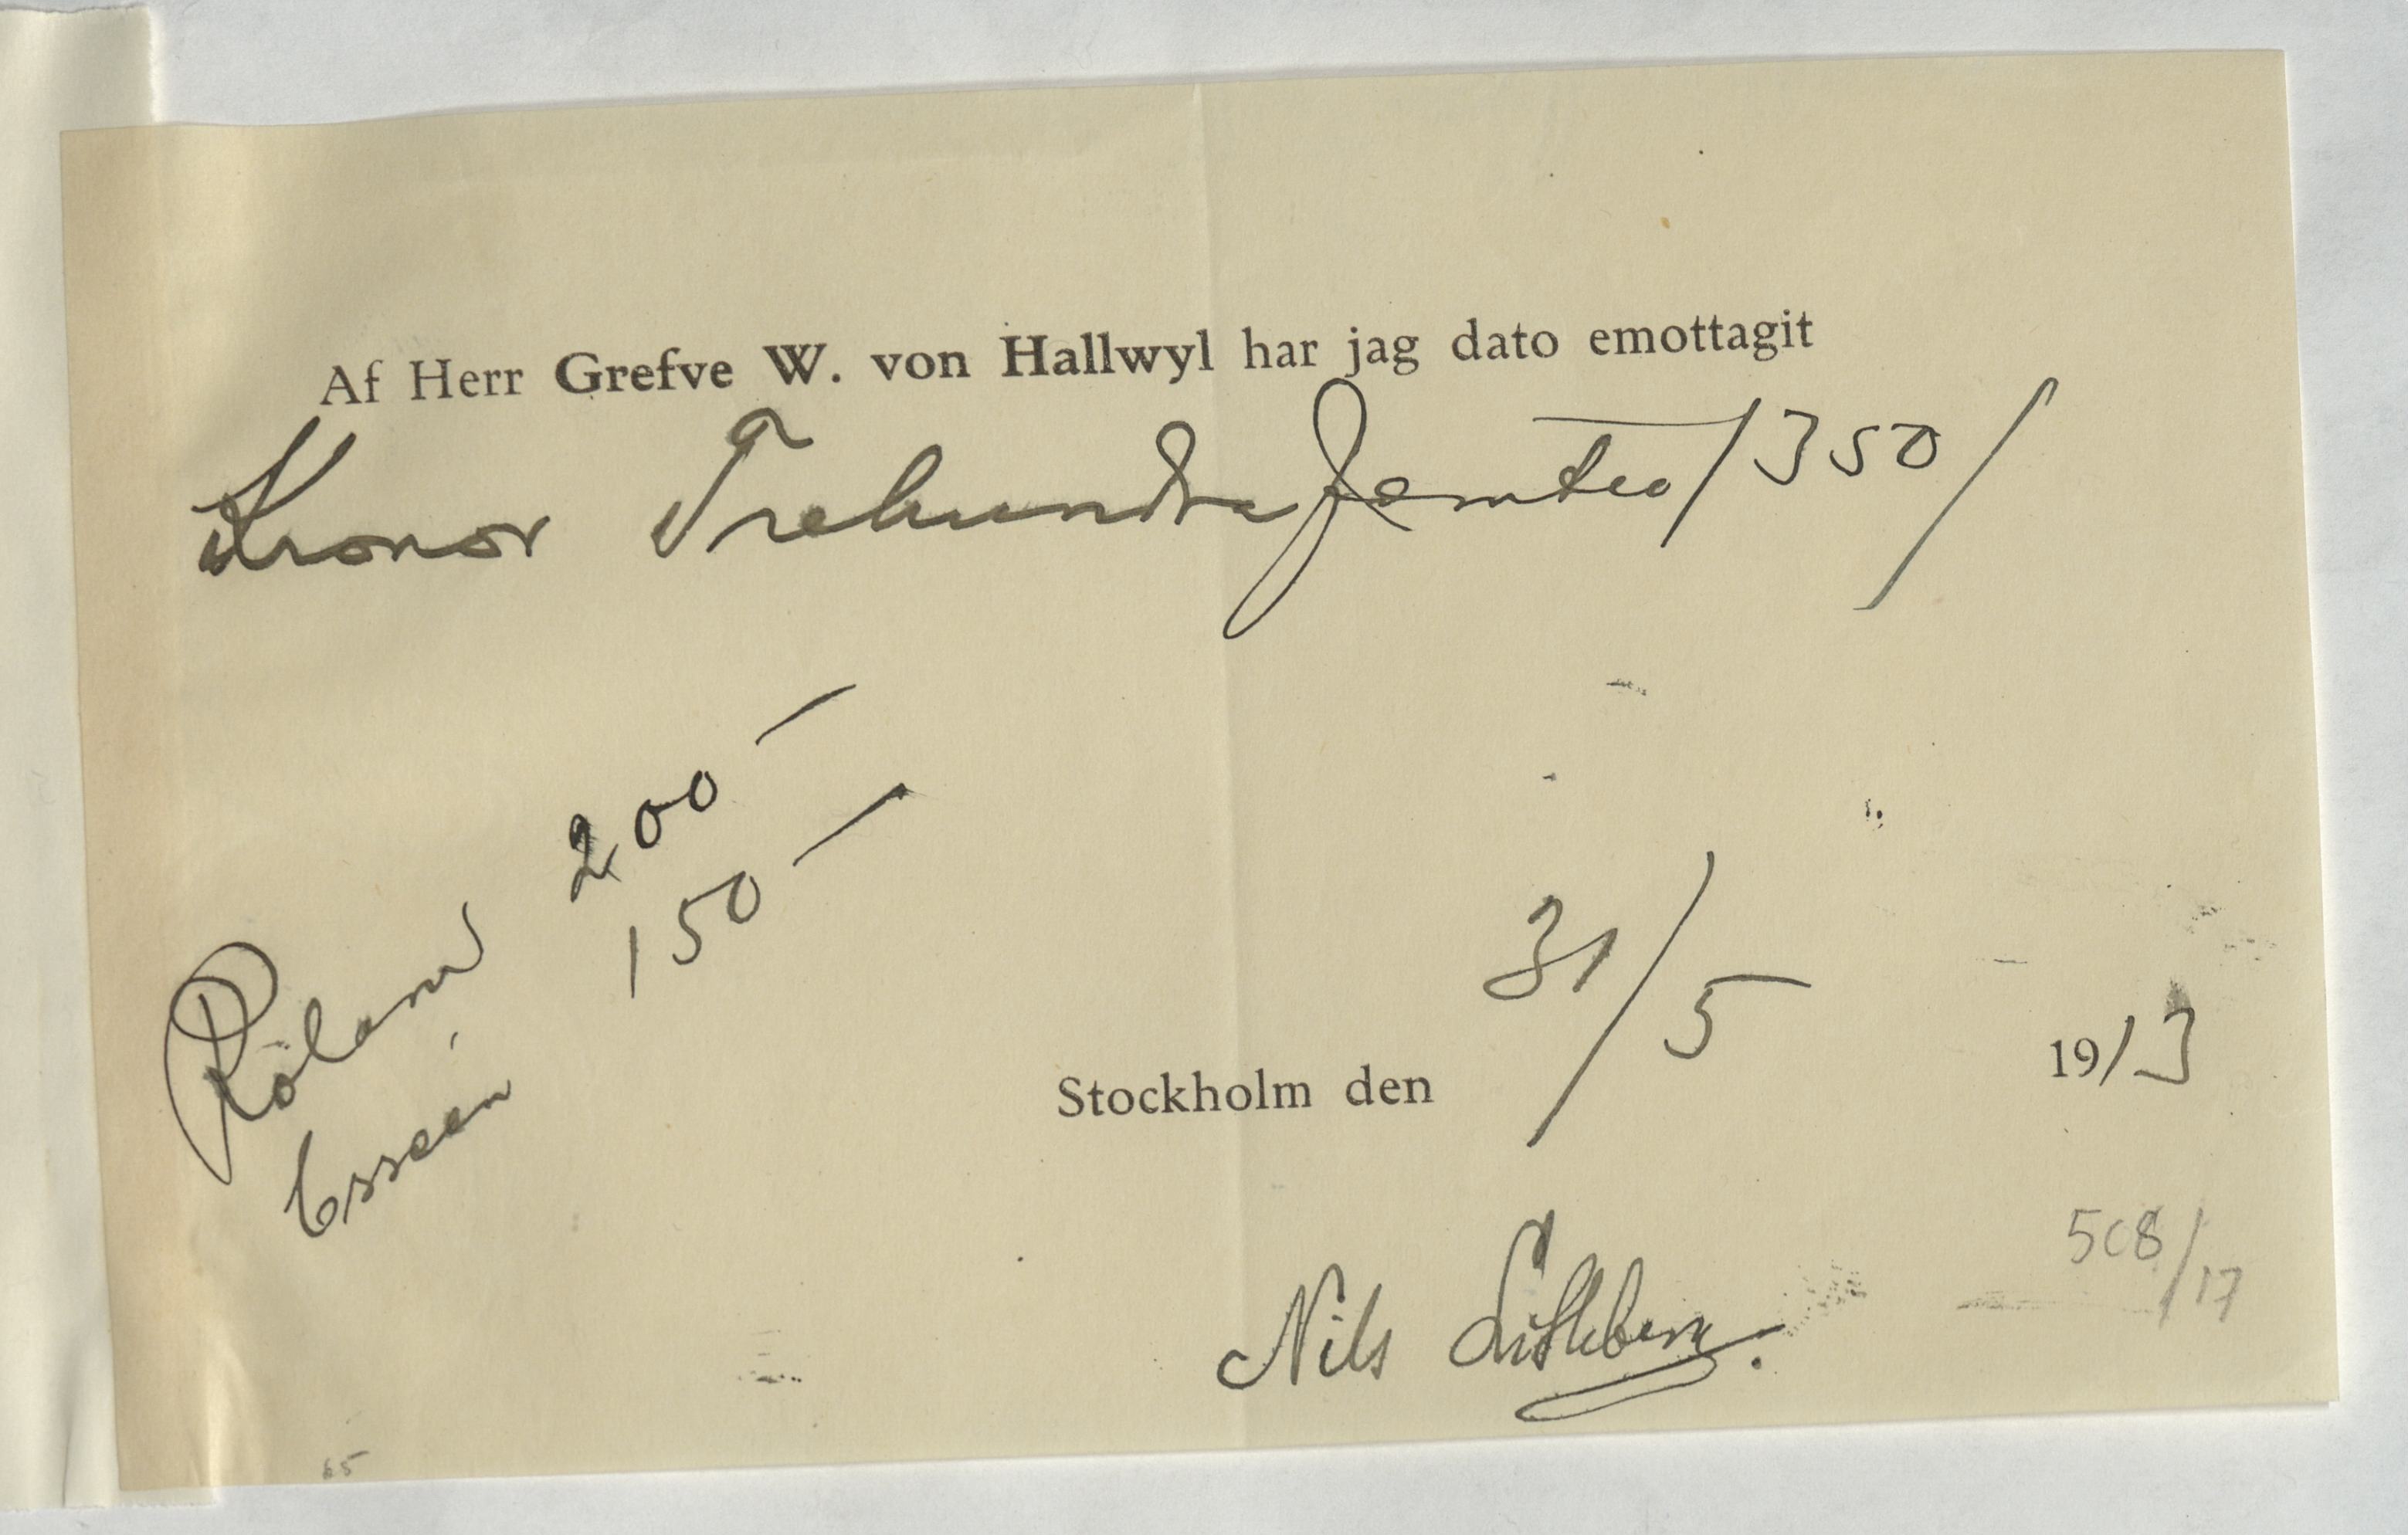 Af Herr Grefve W. von Hallwyl har jag dato emottagit
Kronor Trehundrafemtio /350/
Rölamd 200 —
Esseen 150 —
Stockholm den 31/5 1913
Nils Lithberg.
508/17
65